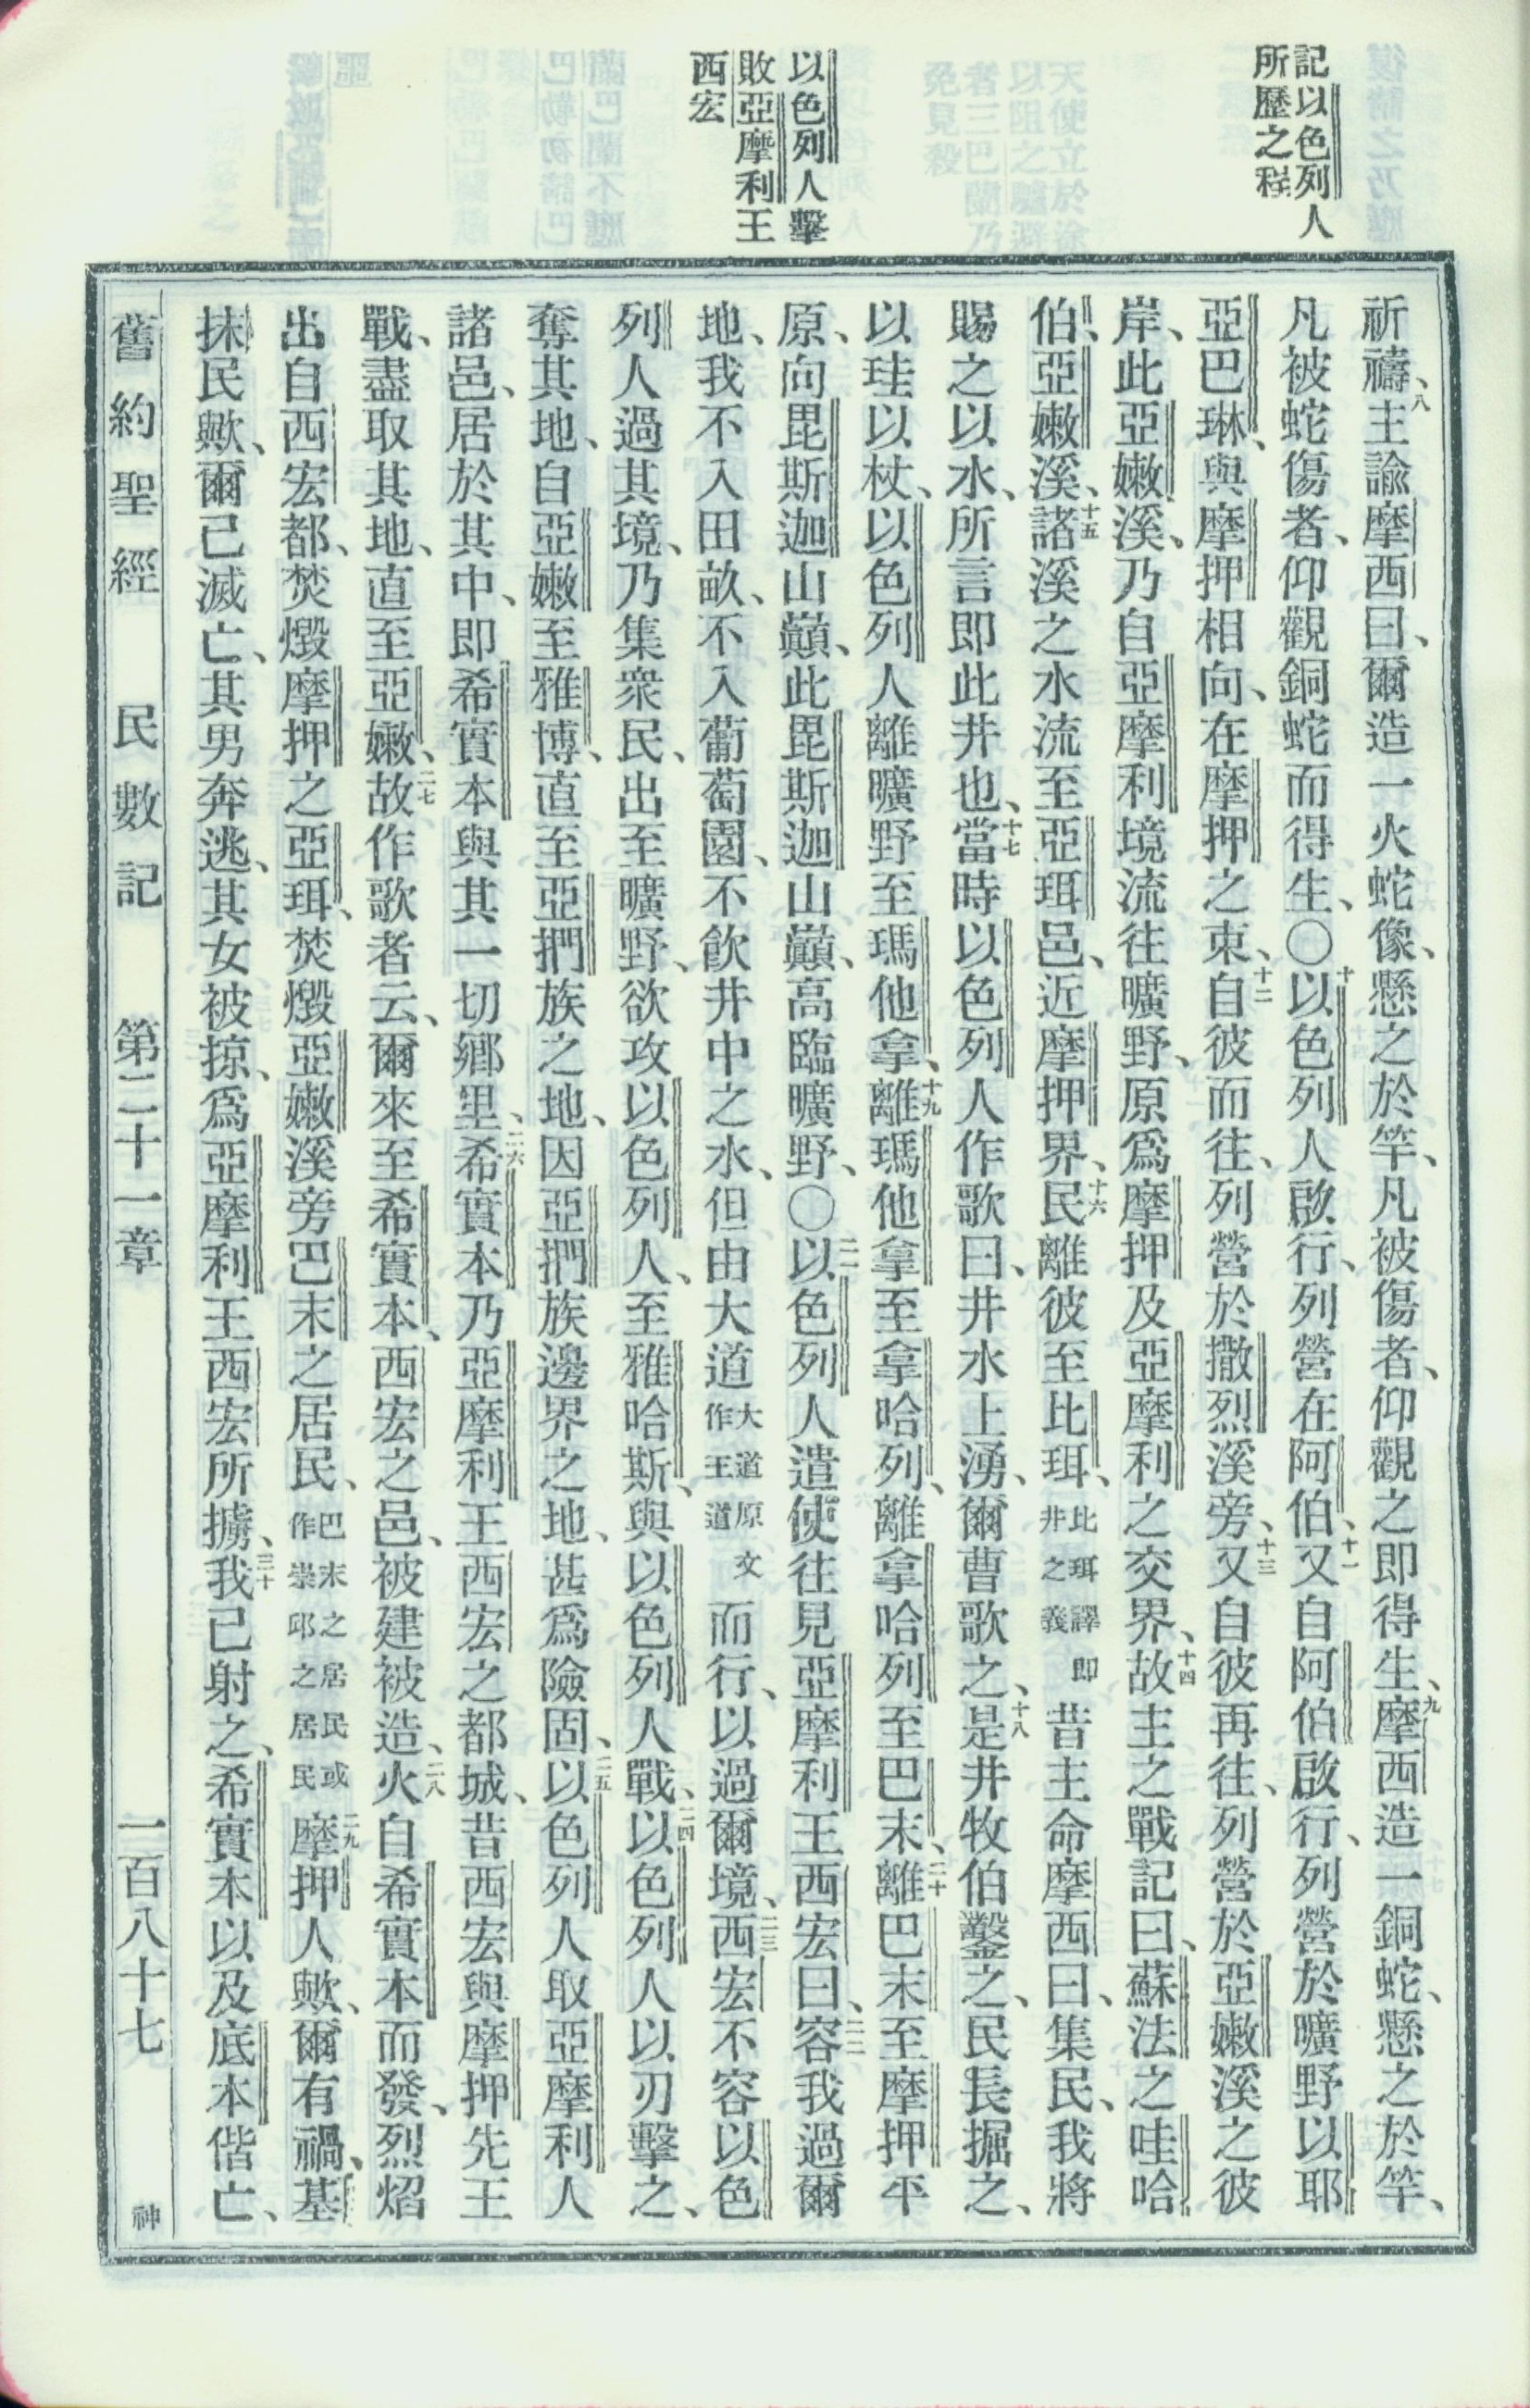 記以色列人
所歷之程
以色列人擊
敗亞摩利王
西宏
祈禱、八主諭摩西曰、爾造一火蛇像、懸之於竿、凡被傷者、仰觀之即得生、九摩西造一銅蛇、懸之於竿、
凡被蛇傷者、仰觀銅蛇而得生、〇十以色列人啟行、列營在阿伯、十一又自阿伯啟行、列營於曠野以耶
亞巴琳、與摩押相向、在摩押之東、十二自彼而往、列營於撒烈溪旁、十三又自彼再往、列營於亞嫩溪之彼
岸、此亞嫩溪、乃自亞摩利境流往曠野、原爲摩押及亞摩利之交界、十四故主之戰記曰、蘇法之哇哈
伯、亞嫩溪、十五諸溪之水流至亞珥邑、近摩押界、十六民離彼至比珥、比珥譯即井之義昔主命摩西曰、集民、我將
賜之以水、所言即此井也、十七當時以色列人作歌曰、井水上湧、爾曹歌之、十八是井牧伯鑿之、民長掘之、
以珪以杖、以色列人離曠野至瑪他拿、十九離瑪他拿至拿哈列、離拿哈列至巴末、二十離巴末至摩押平
原、向毘斯迦山巔、此毘斯迦山巔、高臨曠野、〇二一以色列人遣使往見亞摩利王西宏曰、二二容我過爾
地、我不入田畝、不入葡萄園、不飲井中之水、但由大道大道原文作王道而行、以過爾境、二三西宏不容以色
列人過其境、乃集衆民、出至曠野、欲攻以色列人、至雅哈斯、與以色列人戰、二四以色列人以刃擊之、
奪其地、自亞嫩至雅博、直至亞捫族之地、因亞捫族邊界之地、甚爲險固、二五以色列人取亞摩利人
諸邑、居於其中、即希實本與其一切鄉里、二六希實本乃亞摩利王西宏之都城、昔西宏與摩押先王
戰、盡取其地、直至亞嫩、二七故作歌者云、爾來至希實本、西宏之邑、被建被造、二八火自希實本而發、烈焰
出自西宏都、焚燬摩押之亞珥、焚燬亞嫩溪旁巴末之居民、巴末之居民或作崇邱之居民二九摩押人歟、爾有禍、基
抹民歟、爾已滅亡、其男奔逃、其女被掠、爲亞摩利王西宏所擄、三十我已射之、希實本以及底本偕亡、
舊約聖經　民數記　第二十一章　一百八十七　神